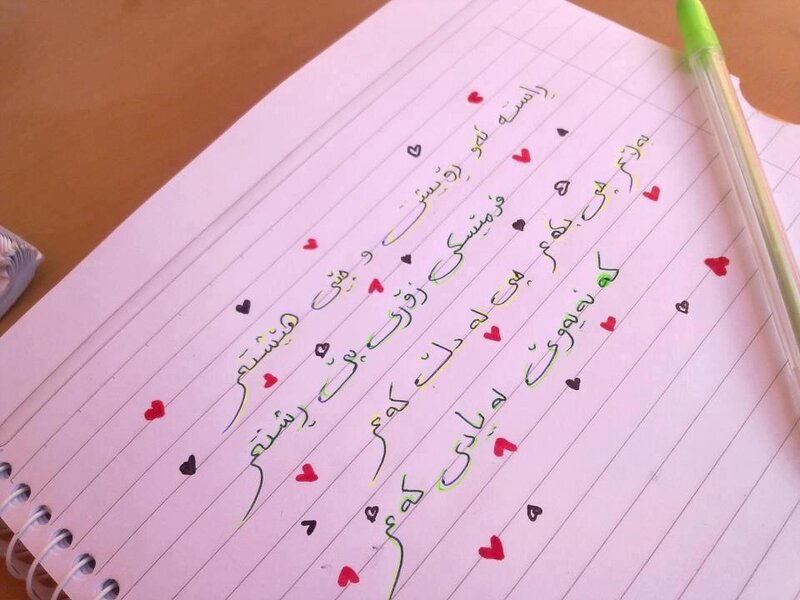 ڕاستە ئەو ڕۆیشت و جێی هێشتم
فرمێسکی زۆری پێ ڕشتم
بەڵام چی بکەم چی لە دڵ کەم
کە نەیەوێ لەیادی کەم